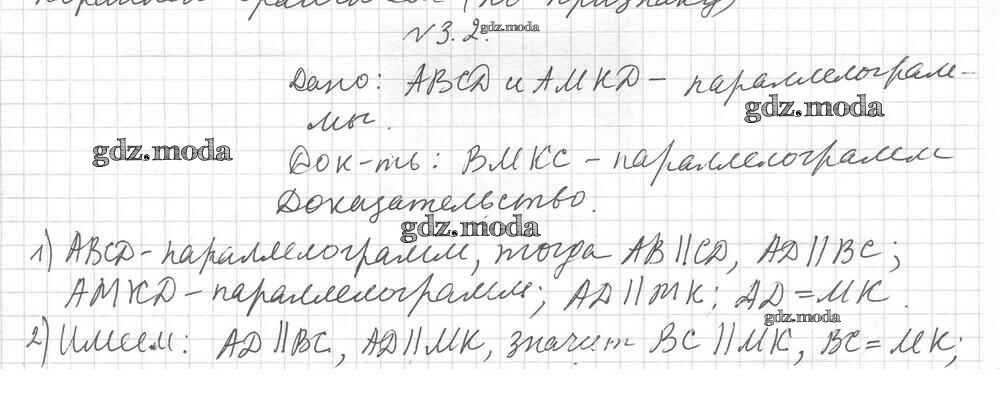 (по признаку)
N3.2. gdz.moda
Дано: ABCD и AMKD - параллелограм-
gdz.moda
мы.
gdz.moda
Док-ть: BMKC - параллелограмм
Доказательство.
gdz.moda
1) ABCD - параллелограмм, тогда AB || CD, AD || BC;
AMKD - параллелограмм; AD || MK; AD = MK.
gdz.moda
2) Имеем: AD || BC, AD || MK, значит BC || MK, BC = MK;